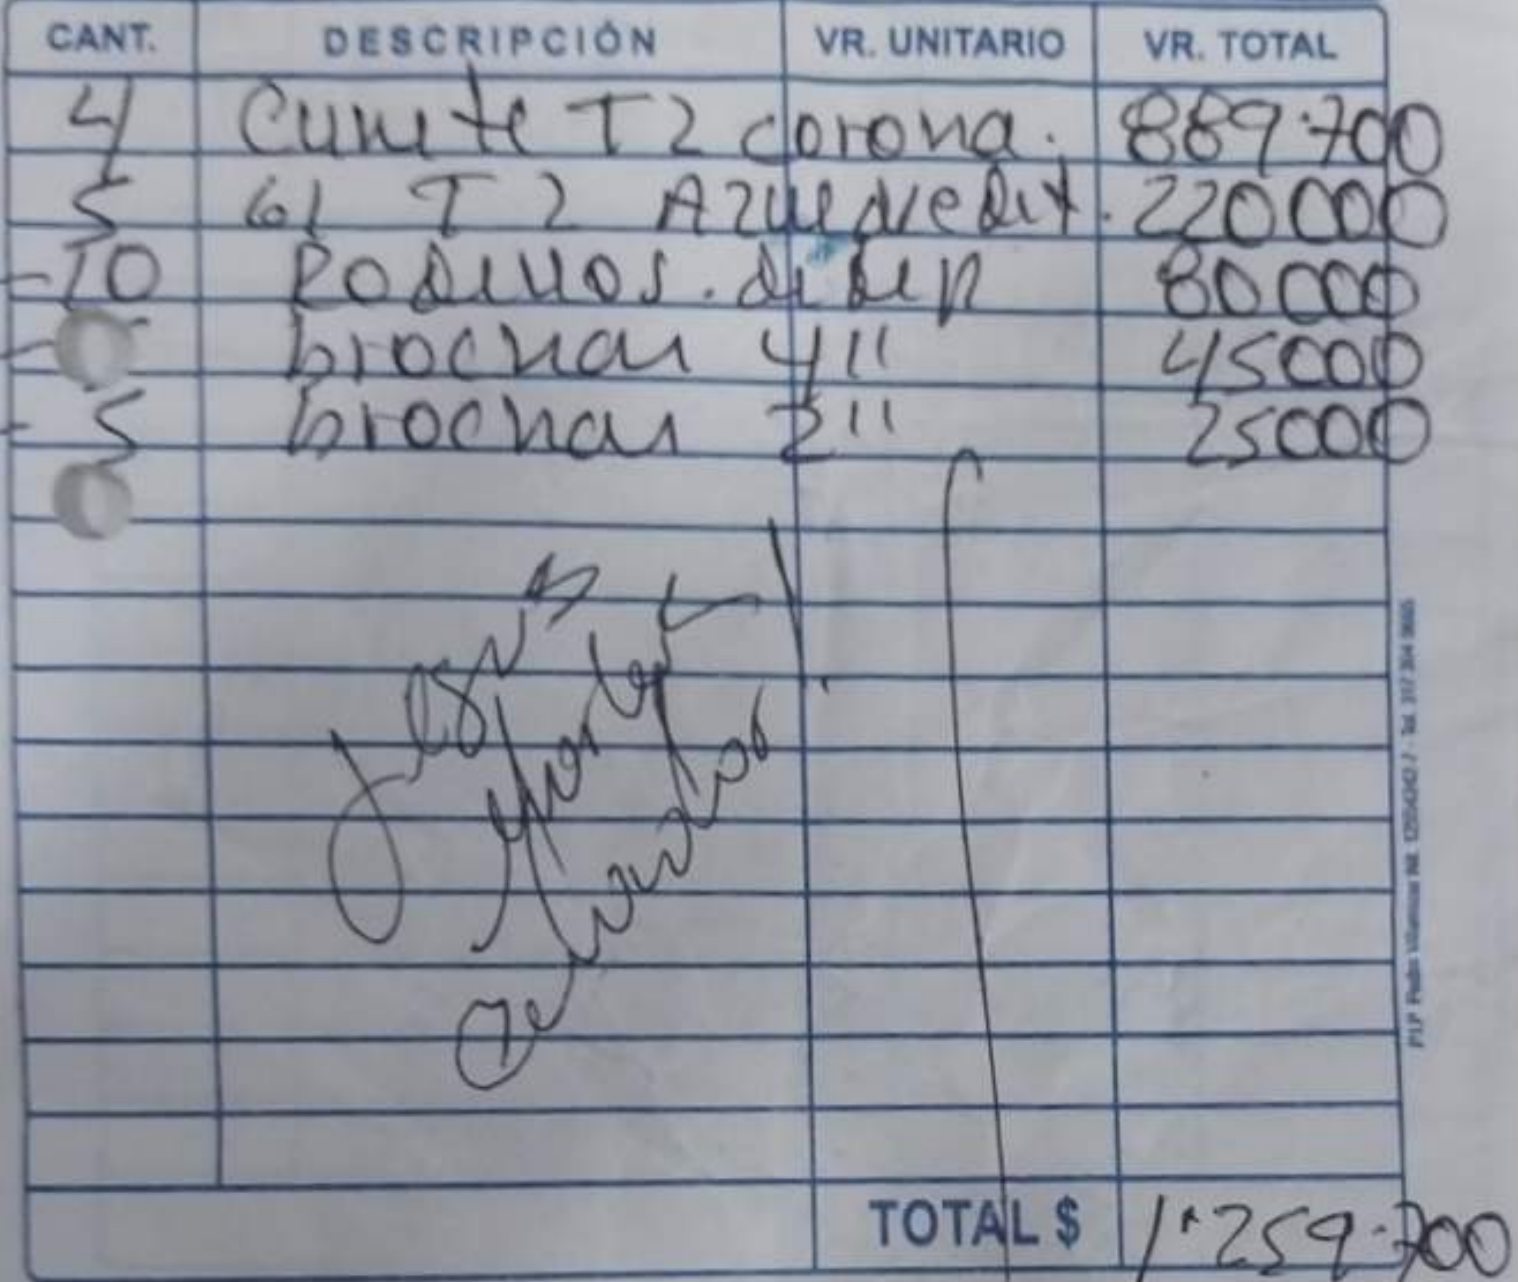 CANT. DESCRIPCIÓN VR. UNITARIO VR. TOTAL
4 Cuñete T2 corona. 889.700
5 Gl T2 Azul 220000
10 Rodillos. de 80000
brochas 4" 45000
5 brochas 2" 25000
Jesus
TOTAL $ 1'259.700